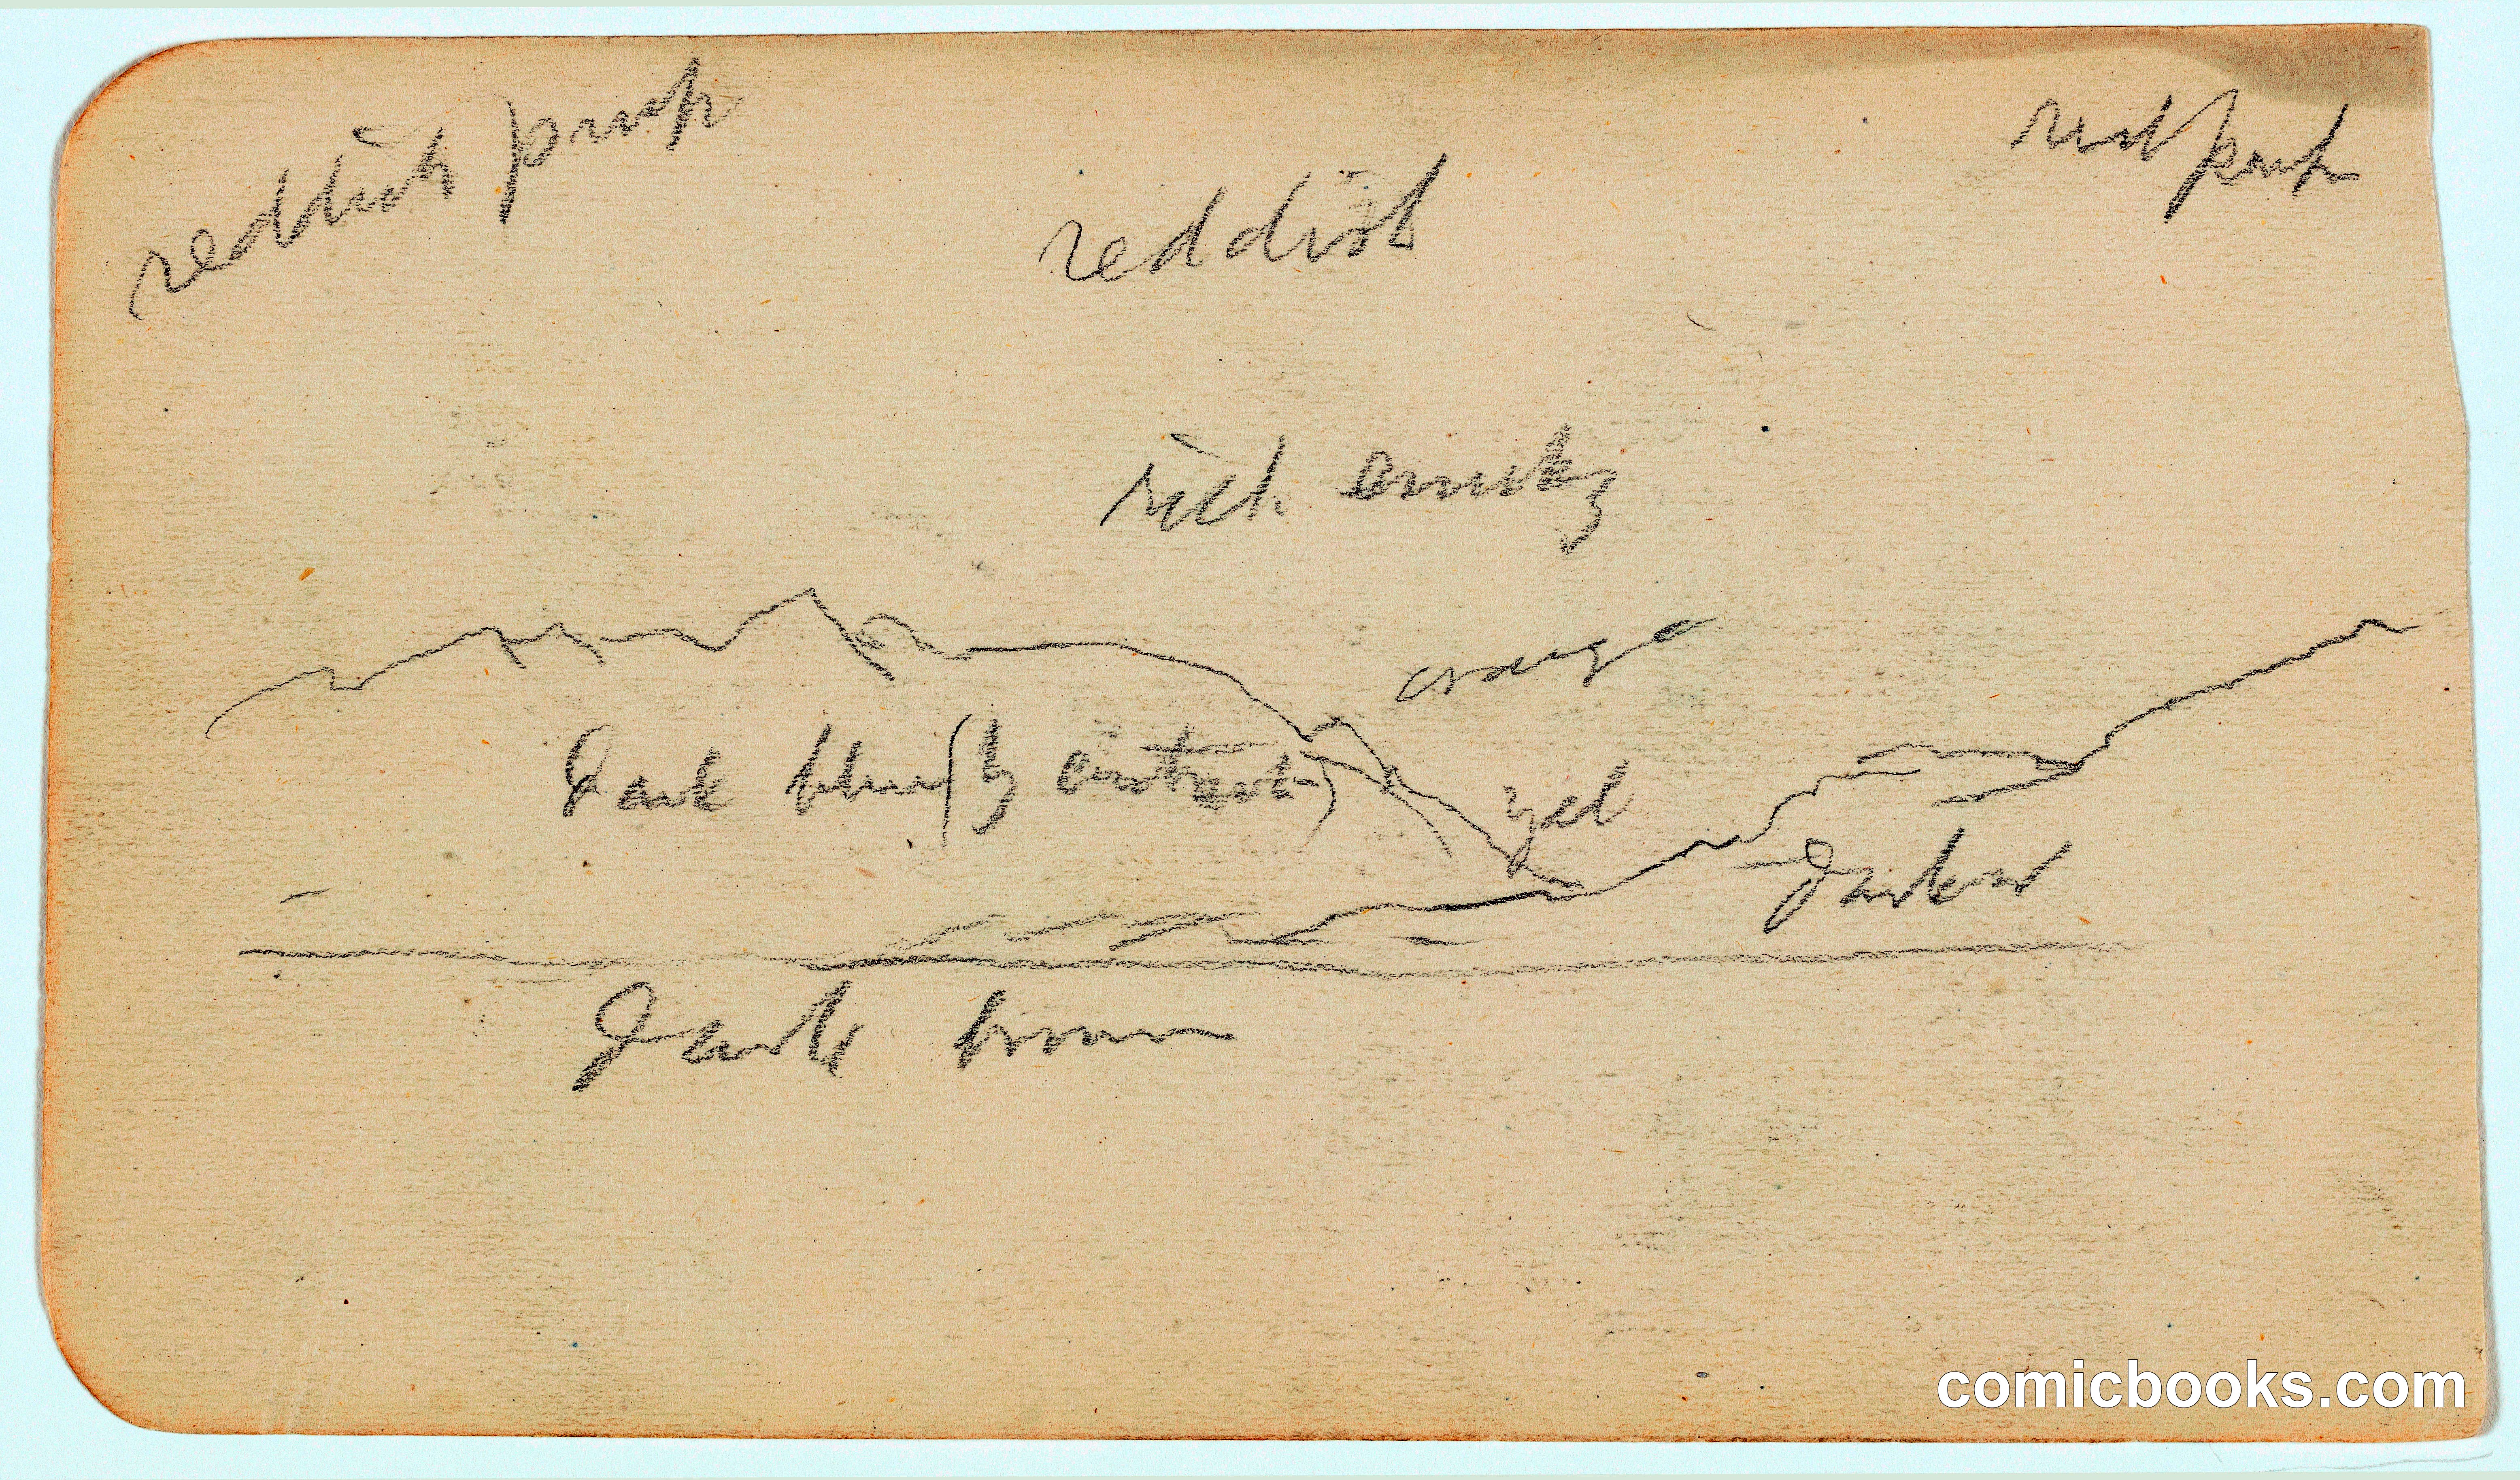 reddish purp
red purp
reddish
rich
orange
Dark blue (by contrast)
yel
Darker
Dark brown
comicbooks.com